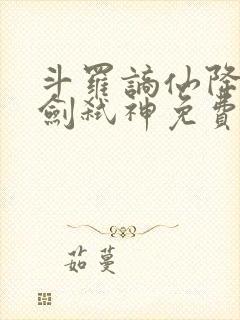 斗羅謫仙降
劍弒神免費
茹蔓